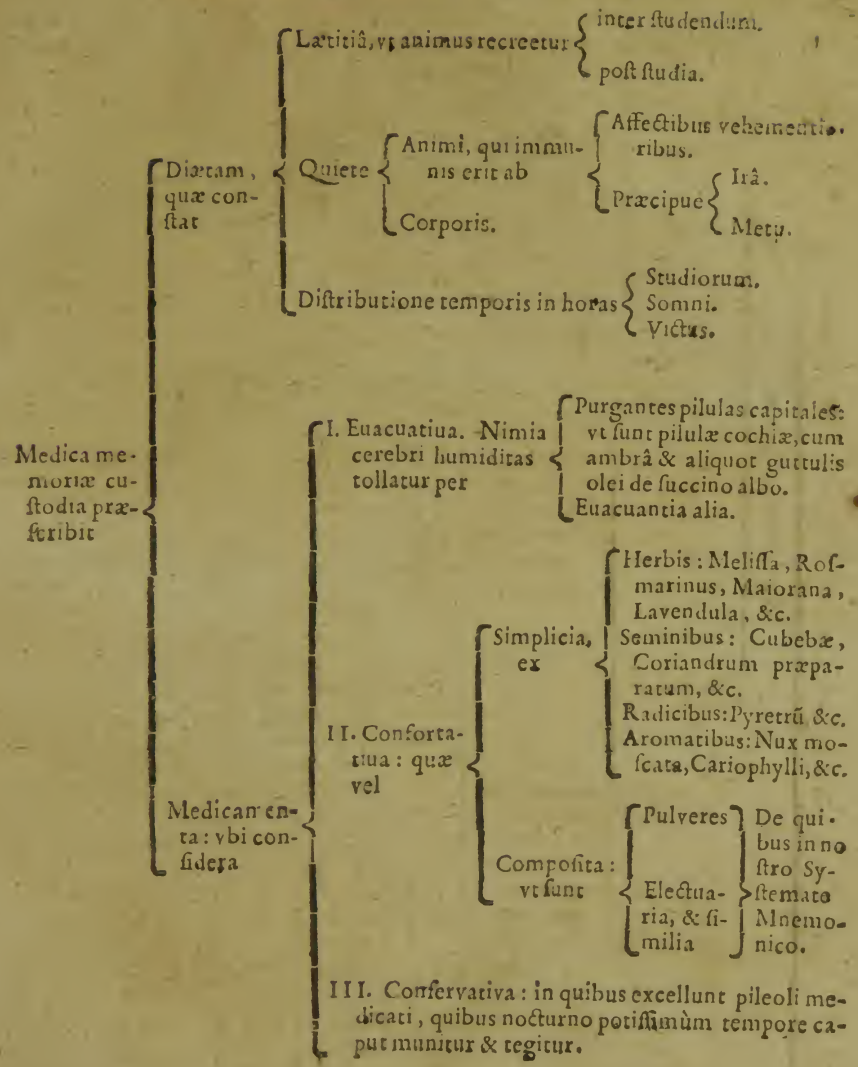 Medica me-
moriæ cu-
ſtodia præ-
ſcribit
Diætam,
quæ con-
ſtat
Lætitiâ, vt animus recreetur
inter ſtudendum.
poſt ſtudia.
Quiete
Animi, qui immu-
nis erit ab
Affectibus vehementio-
ribus.
Præcipue
Irâ.
Metu.
Corporis.
Diſtributione temporis in horas
Studiorum.
Somni.
Victus.
Medicamen-
ta: vbi con-
ſidera
I. Euacuatiua. Nimia
cerebri humiditas
tollatur per
Purgantes pilulas capitales:
vt ſunt pilulæ cochiæ, cum
ambrâ & aliquot guttulis
olei de ſuccino albo.
Euacuantia alia.
II. Conforta-
tiua: quæ
vel
Simplicia,
ex
Herbis: Meliſſa, Roſ-
marinus, Maiorana,
Lavendula, &c.
Seminibus: Cubebæ,
Coriandrum præpa-
ratum, &c.
Radicibus: Pyretrũ &c.
Aromatibus: Nux mo-
ſcata, Cariophylli, &c.
Compoſita:
vt ſunt
Pulveres
Electua-
ria, & ſi-
milia
De qui-
bus in no
ſtro Sy-
ſtemate
Mnemo-
nico.
III. Conſervativa: in quibus excellunt pileoli me-
dicati, quibus nocturno potiſſimùm tempore ca-
put munitur & tegitur.